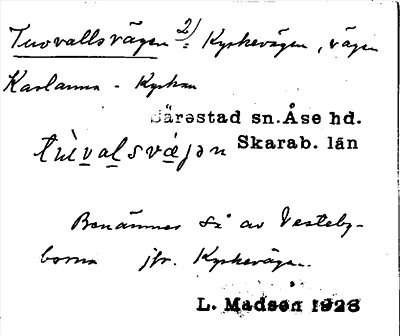 Tuovallsvägen 2) = Kyrkevägen, vägen
Karlanna - Kyrkan
Särestad sn. Åse hd.
Skarab. län
Benämnes så av Vesteby-
borna jfr. Kyrkevägen.
L. Madsén 1928